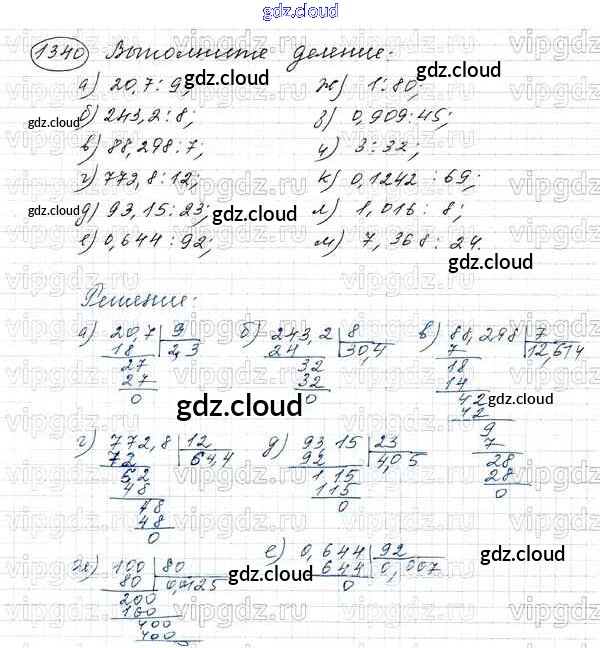 gdz.cloud
1340 Выполните деление:
а) 20,7 : 9; ж) 1 : 80;
б) 243,2 : 8; з) 0,909 : 45;
в) 88,298 : 7; и) 3 : 32;
г) 772,8 : 12; к) 0,1242 : 69;
д) 93,15 : 23; л) 1,016 : 8;
е) 0,644 : 92; м) 7,368 : 24.
Решение:
а) 20,7 | 9 б) 243,2 | 8 в) 88,298 | 7
18 2,3 24 30,4 7 12,614
27 32 18
27 32 14
0 0 42
42
9
7
28
28
0
г) 772,8 | 12 д) 93,15 | 23
72 64,4 92 4,05
52 1,15
48 115
48 0
48
0
ж) 100 | 80 е) 0,644 | 92
80 0,0125 644 0,007
200 0
160
400
400
gdz.cloud
gdz.cloud
gdz.cloud
gdz.cloud
gdz.cloud
gdz.cloud
gdz.cloud
gdz.cloud
gdz.cloud
gdz.cloud
vipgdz.ru